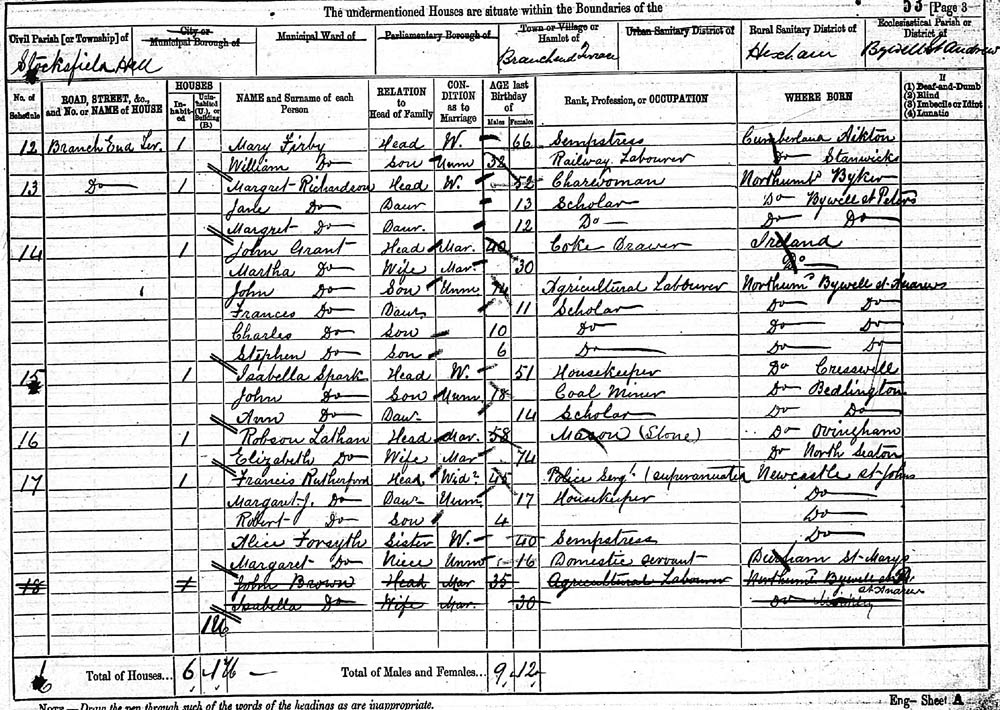 The undermentioned Houses are situate within the Boundaries of the
53 [Page 3
Civil Parish [or Township] of
City or Municipal Borough of
Municipal Ward of
Parliamentary Borough of
Town or Village or Hamlet of
Urban Sanitary District of
Rural Sanitary District of
Ecclesiastical Parish or District of
Stocksfield Hall
Branchend Terrace
Hexham
Bywell St Andrew
No. of Schedule
ROAD, STREET, &c., and No. or NAME of HOUSE
HOUSES
Inhabited
Uninhabited (U.), or Building (B.)
NAME and Surname of each Person
RELATION to Head of Family
CONDITION as to Marriage
AGE last Birthday of
Males
Females
Rank, Profession, or OCCUPATION
WHERE BORN
If
(1) Deaf-and-Dumb
(2) Blind
(3) Imbecile or Idiot
(4) Lunatic
12 Branch End Ter. 1 Mary Firby Head W. 66 Sempstress Cumberland Aikton
William Do Son Unm 32 Railway Labourer Do Stanwicks
13 Do 1 Margret Richardson Head W. 52 Charewoman Northumb Byker
Jane Do Daur 13 Scholar Do Bywell St Peters
Margret Do Daur. 12 Do Do Do
14 1 John Grant Head Mar. 40 Coke Drawer Ireland
Martha Do Wife Mar. 30 Do
John Do Son Unm 14 Agricultural Labourer Northum Bywell St Andrews
Frances Do Daur 11 Scholar Do Do
Charles Do Son 10 Do Do Do
Stephen Do Son 6 Do Do Do
15 1 Isabella Spark Head W. 51 Housekeeper Do Cresswell
John Do Son Unm 18 Coal Miner Do Bedlington
Ann Do Daur 14 Scholar Do Do
16 1 Robson Lathan Head Mar. 58 Mason (Stone) Do Ovingham
Elizabeth Do Wife Mar 74 Do North Seaton
17 1 Francis Rutherford Head Widr 45 Police Sergt (superanuated Newcastle St Johns
Margaret J. Do Daur Unm 17 Housekeeper Do
Robert Do Son 4 Do
Alice Forsyth Sister W. 40 Sempstress Do
Margaret Do Niece Unm 16 Domestic Servant Durham St Marys
18 1 John Brown Head Mar 35 Agricultural Labourer Northum Bywell St
St Andrew
Isabella Do Wife Mar. 30 Do
Total of Houses... 6
Total of Males and Females... 9 12
NOTE.—Draw the pen through such of the words of the headings as are inappropriate.
Eng- Sheet A